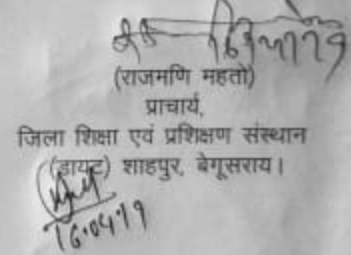 (राजमणि महतो)
प्राचार्य,
जिला शिक्षा एवं प्रशिक्षण संस्थान
(डायट) शाहपुर, बेगूसराय।
16.04.19